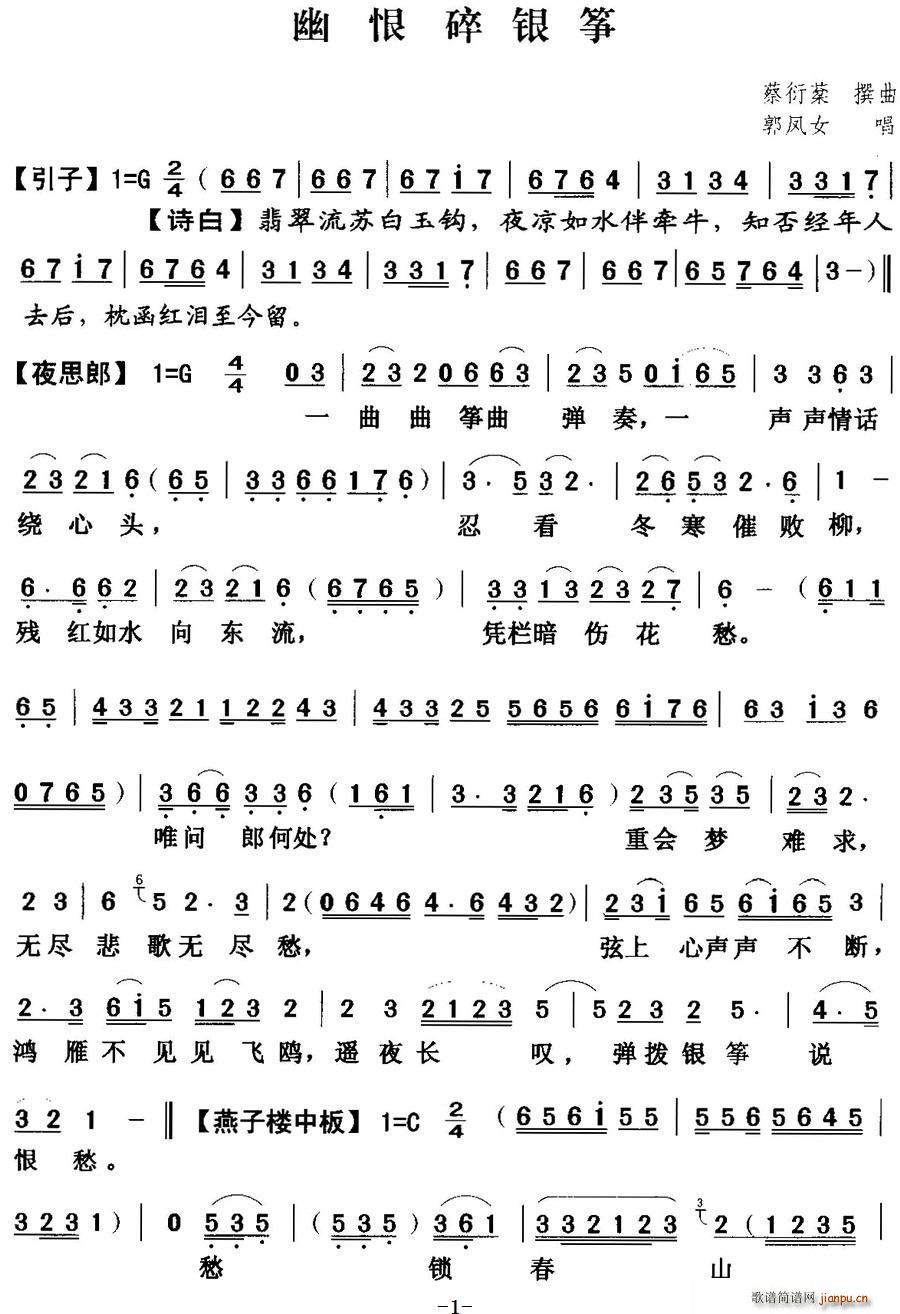 幽恨碎银筝
蔡衍棻 撰曲
郭凤女 唱
【引子】1=G 2/4 ( 6 6 7 | 6 6 7 | 6 7 i 7 | 6 7 6 4 | 3 1 3 4 | 3 3 1 7 |
【诗白】翡翠流苏白玉钩，夜凉如水伴牵牛，知否经年人
6 7 i 7 | 6 7 6 4 | 3 1 3 4 | 3 3 1 7 | 6 6 7 | 6 6 7 | 6 5 7 6 4 | 3 - ) ||
去后，枕函红泪至今留。
【夜思郎】 1=G 4/4 0 3 | 2 3 2 0 6 6 3 | 2 3 5 0 i 6 5 | 3 3 6 3 |
一 曲 曲 筝曲 弹 奏，一 声 声情话
2 3 2 1 6 ( 6 5 | 3 3 6 6 1 7 6 ) | 3 · 5 3 2 · | 2 6 5 3 2 · 6 | 1 -
绕 心 头， 忍 看 冬 寒 催 败 柳，
6 · 6 6 2 | 2 3 2 1 6 ( 6 7 6 5 ) | 3 3 1 3 2 3 2 7 | 6 - ( 6 1 1
残 红如水 向 东 流， 凭栏暗 伤 花 愁。
6 5 | 4 3 3 2 1 1 2 2 4 3 | 4 3 3 2 5 5 6 5 6 6 i 7 6 | 6 3 i 3 6
0 7 6 5 ) | 3 6 6 3 3 6 ( 1 6 1 | 3 · 3 2 1 6 ) 2 3 5 3 5 | 2 3 2 ·
唯问 郎何处？ 重会 梦 难 求，
2 3 | 6 6 5 2 · 3 | 2 ( 0 6 4 6 4 · 6 4 3 2 ) | 2 3 i 6 5 6 i 6 5 3 |
无尽 悲 歌 无 尽 愁， 弦上 心声声 不 断，
2 · 3 6 i 5 1 2 3 2 | 2 3 2 1 2 3 5 | 5 2 3 2 5 · | 4 · 5
鸿 雁 不 见 见 飞 鸥，遥 夜 长 叹，弹拨 银 筝 说
3 2 1 - || 【燕子楼中板】 1=C 2/4 ( 5 6 5 6 i 5 5 | 5 5 6 5 5 6 4 5 |
恨 愁。
3 2 3 1 ) | 0 5 3 5 | ( 5 3 5 ) 3 6 1 | 3 3 2 1 2 3 | 3 2 ( 1 2 3 5 |
愁 锁 春 山
-1-
歌谱简谱网 jianpu.cn